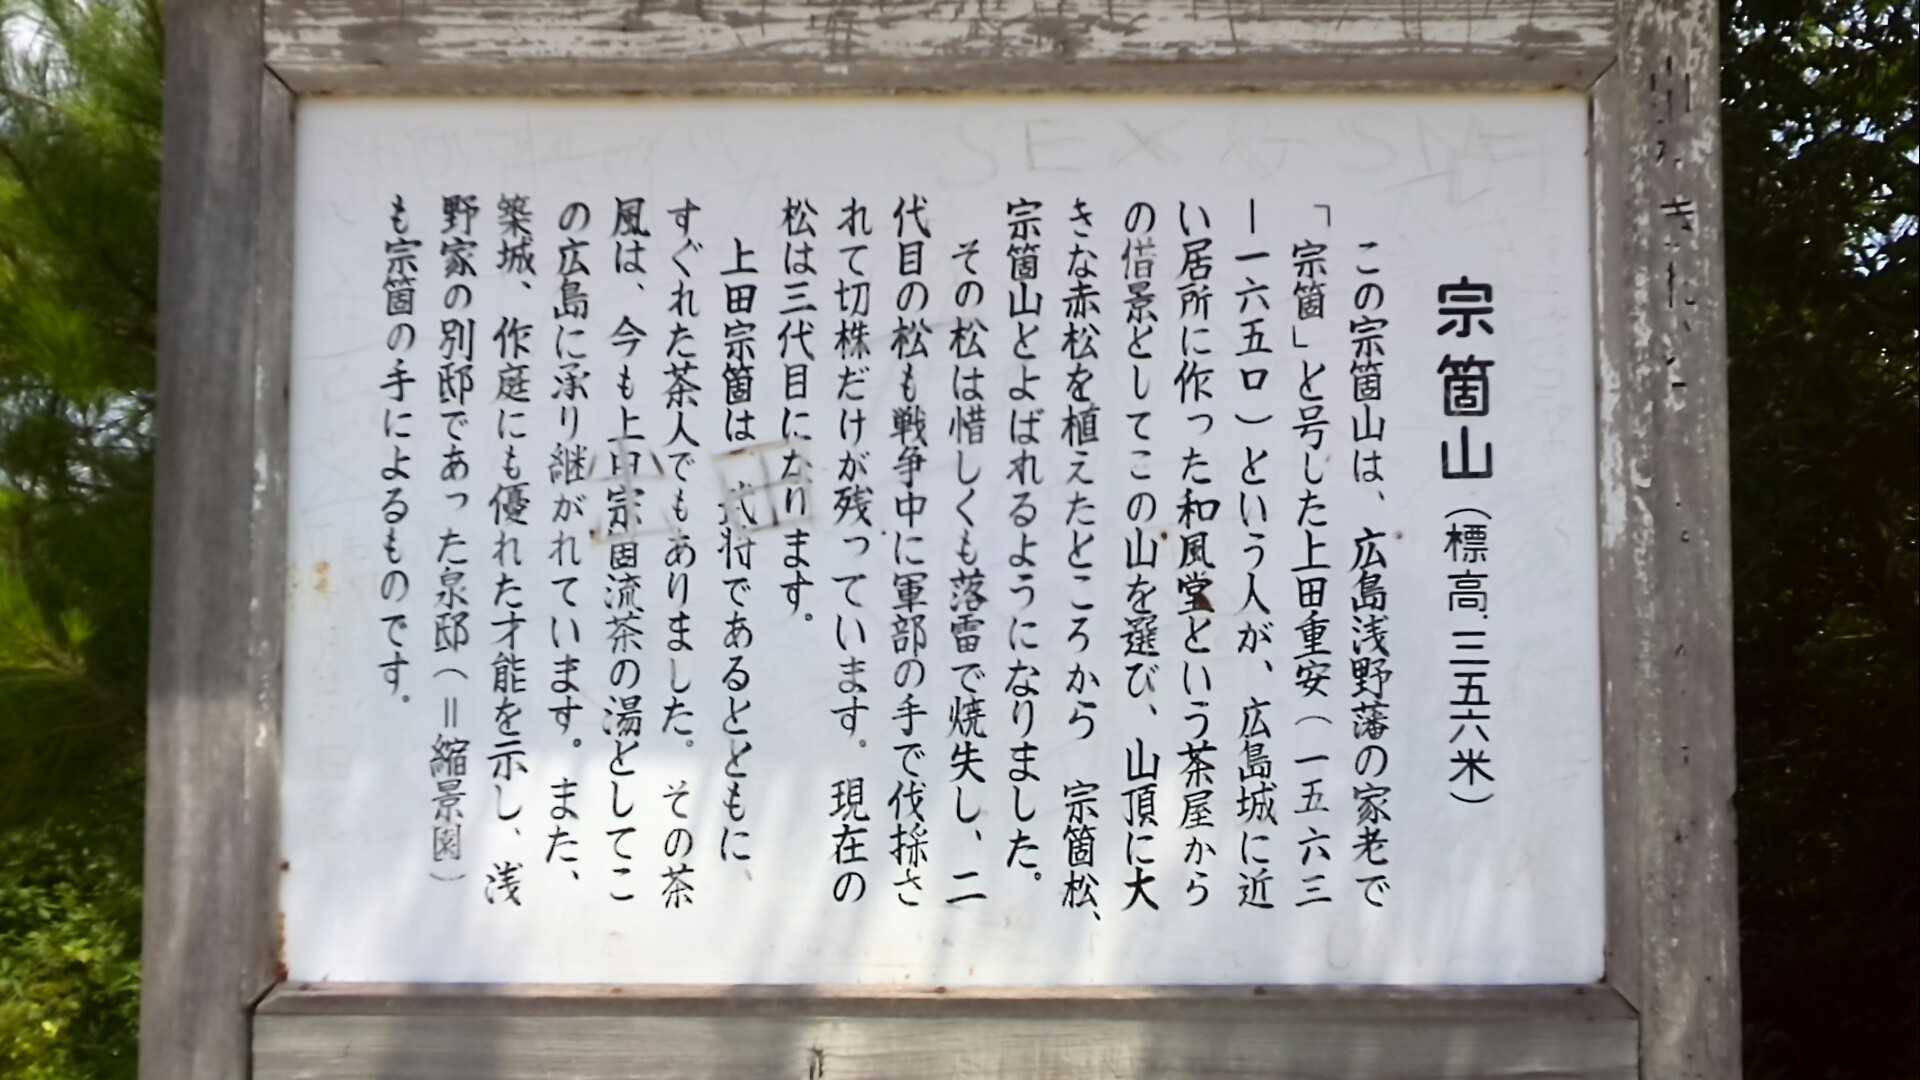 宗箇山（標高三五六米）
この宗箇山は、広島浅野藩の家老で
「宗箇」と号した上田重安（一五六三
ー一六五〇）という人が、広島城に近
い居所に作った和風堂という茶屋から
の借景としてこの山を選び、山頂に大
きな赤松を植えたところから 宗箇松、
宗箇山とよばれるようになりました。
その松は惜しくも落雷で焼失し、二
代目の松も戦争中に軍部の手で伐採さ
れて切株だけが残っています。現在の
松は三代目になります。
上田宗箇は 武将であるとともに、
すぐれた茶人でもありました。その茶
風は、今も上田宗箇流茶の湯としてこ
の広島に承り継がれています。また、
築城、作庭にも優れた才能を示し、浅
野家の別邸であった泉邸（＝縮景園）
も宗箇の手によるものです。
SEX & SM